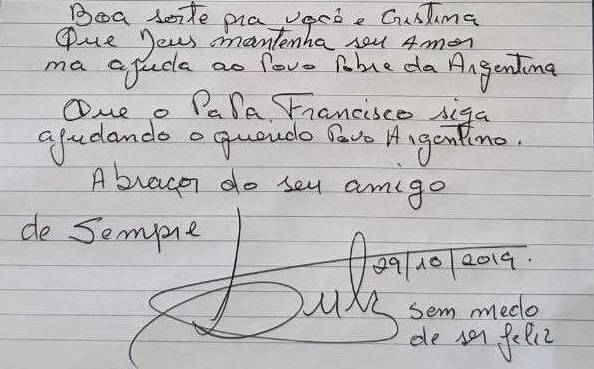 Boa sorte pra você e Cristina
Que Deus mantenha seu Amor
na ajuda ao Povo Pobre da Argentina
Que o PaPa Francisco siga
ajudando o querido Povo Argentino.
Abraços do seu amigo
de Sempre
29/10/2019.
Lula
sem medo
de ser feliz